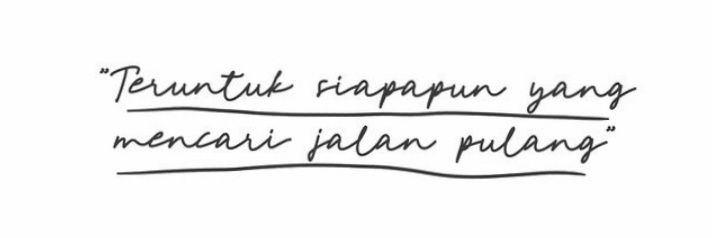 "Teruntuk siapapun yang
mencari jalan pulang"